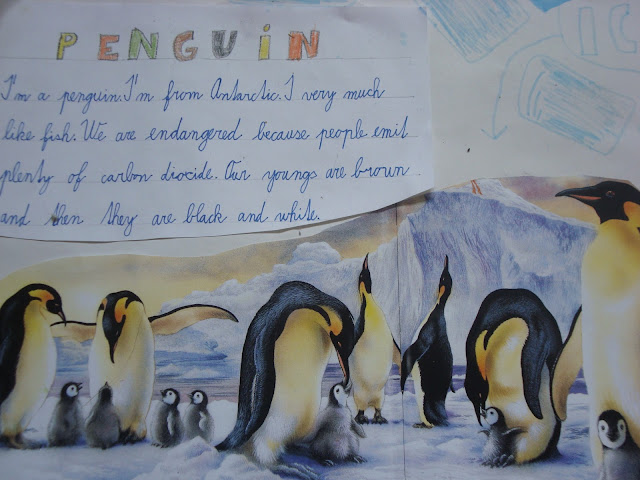 PENGUiN
IC
I'm a penguin. I'm from Antarctic. I very much
like fish. We are endangered because people emit
plenty of carbon diocide. Our youngs are brown
and then they are black and white.